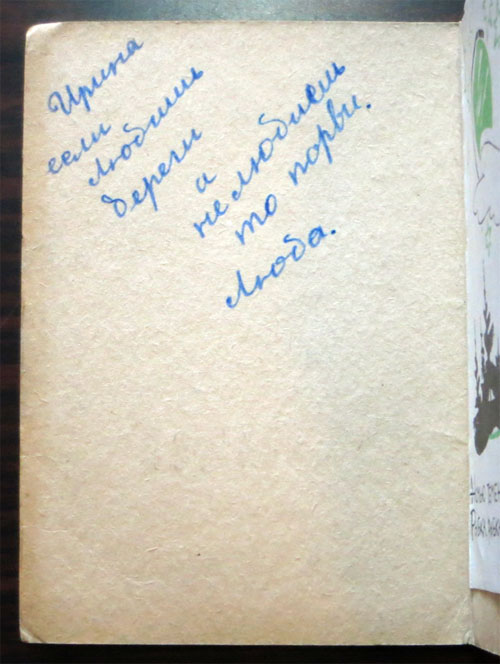 Ирина
если
любишь
береги
а
не любиеш
то порви.
Люба.